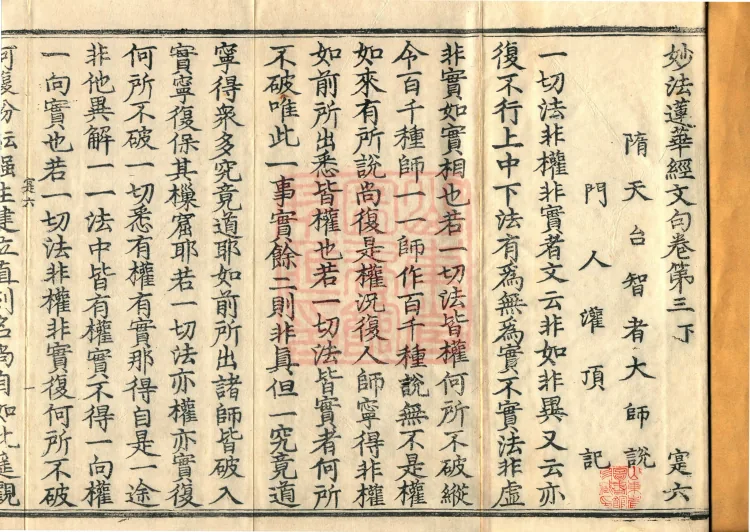 妙法蓮華經文句卷第三下 寔六
隋天台智者大師說
門人灌頂記
一切法非權非實者文云非如非異又云亦
復不行上中下法有爲無爲實不實法非虛
非實如實相也若一切法皆權何所不破縱
令百千種師一一師作百千種說無不是權
如來有所說尚復是權況復人師寧得非權
如前所出悉皆權也若一切法皆實者何所
不破唯此一事實餘二則非眞但一究竟道
寧得衆多究竟道耶如前所出諸師皆破入
實寧復保其樔窟耶若一切法亦權亦實復
何所不破一切悉有權有實那得自是一途
非他異解一一法中皆有權實不得一向權
一向實也若一切法非權非實復何所不破
寔六 一
何復紛紜强生建立直列名尚自如此